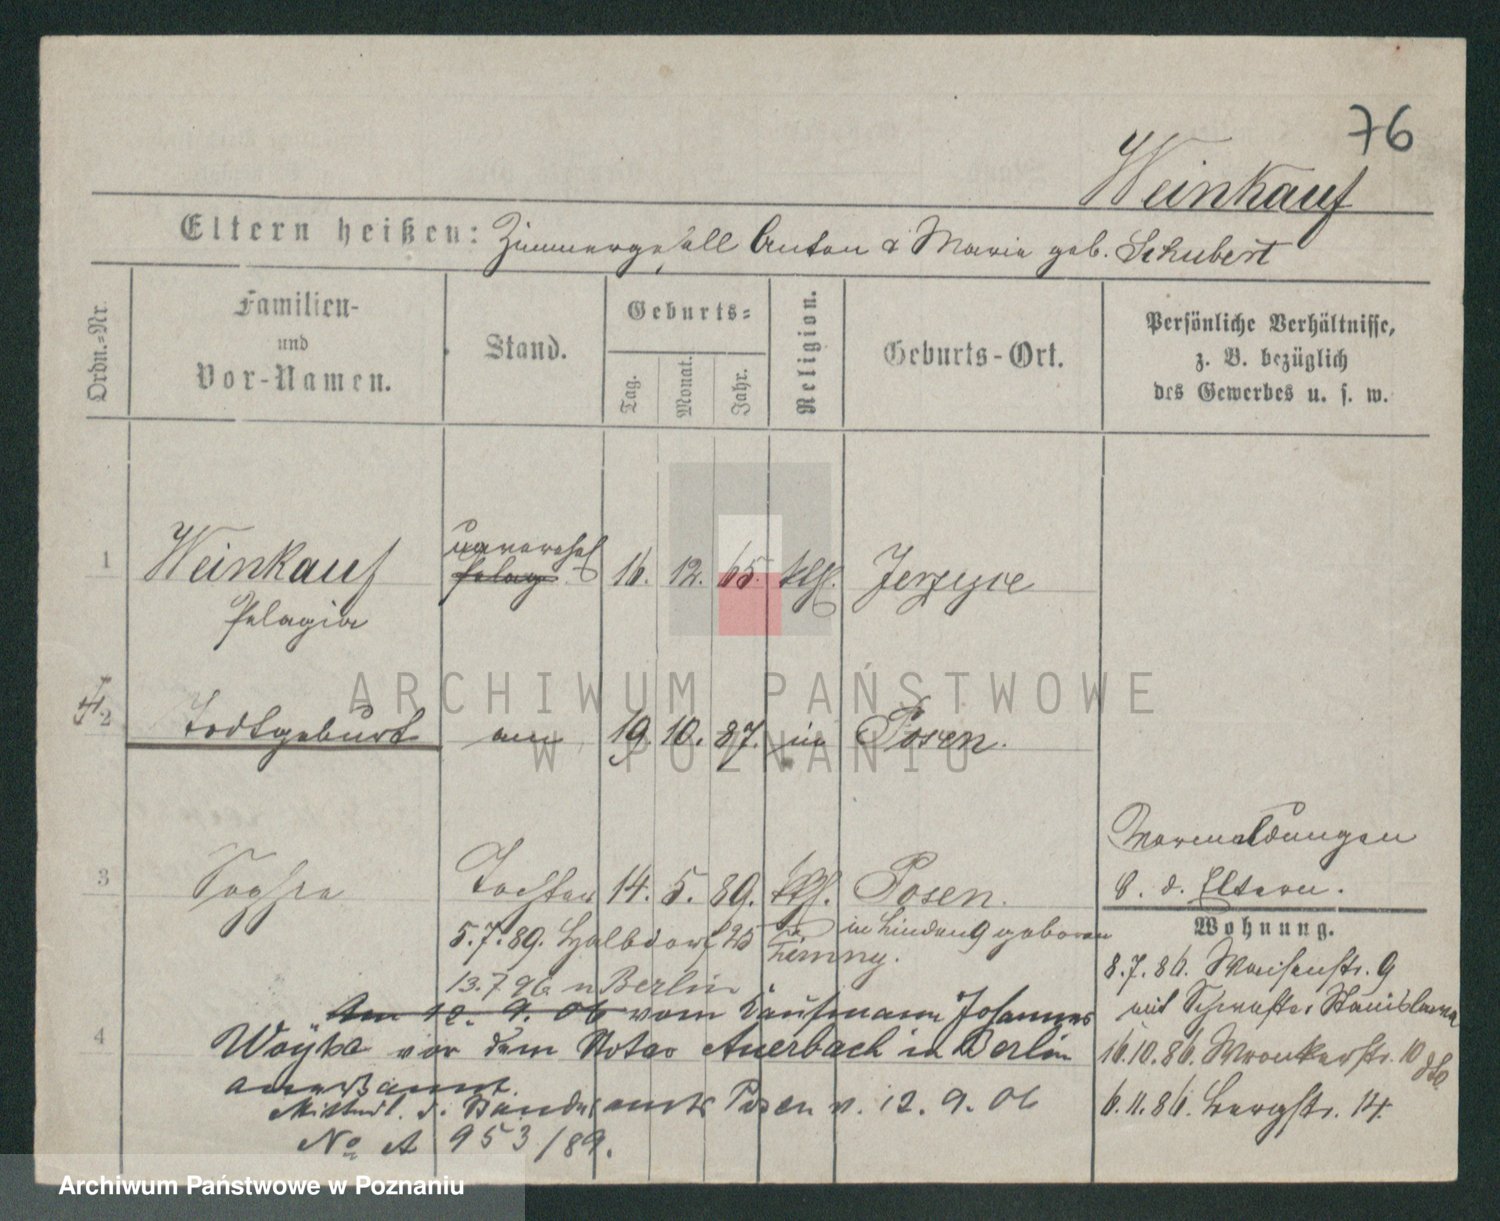 76
Weinkauf
Eltern heißen: Zimmergesell Anton & Maria geb. Schubert
Ordn.=Nr.
Familien-
und
Vor-Namen.
Stand.
Geburts=
Tag.
Monat.
Jahr.
Religion.
Geburts-Ort.
Persönliche Verhältnisse,
z. B. bezüglich
des Gewerbes u. s. w.
1 Weinkauf unverehel 16. 12. 65. kth. Jerzyce
Pelagia
ARCHIWUM PAŃSTWOWE
W POZNANIU
2 Todtgeburt am 19. 10. 87. in Posen.
Vormeldungen
b. d. Eltern.
3 Sophie Tochter 14. 5. 89. kth. Posen.
Wohnung.
5. 7. 89. Halbdorf 25 in Linden 9 geboren
8. 7. 86. Waisenstr. 9
13. 7 96 n Berlin
mit Schwester Stanislawa
Am 12. 9. 06 vom Kaufmann Johannes
4 Woyke vor dem Notar Auerbach in Berlin
16. 10. 86. Wronkerstr. 10
anerkannt.
Mittheil. d. Standesamts Posen v. 12. 9. 06
6. 11. 86. Bergstr. 14.
No A 953/89.
Archiwum Państwowe w Poznaniu